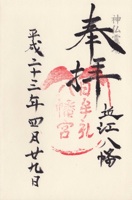 神仏霊
奉拝
近江八幡
日牟礼
八幡宮
平成二十三年四月廿九日